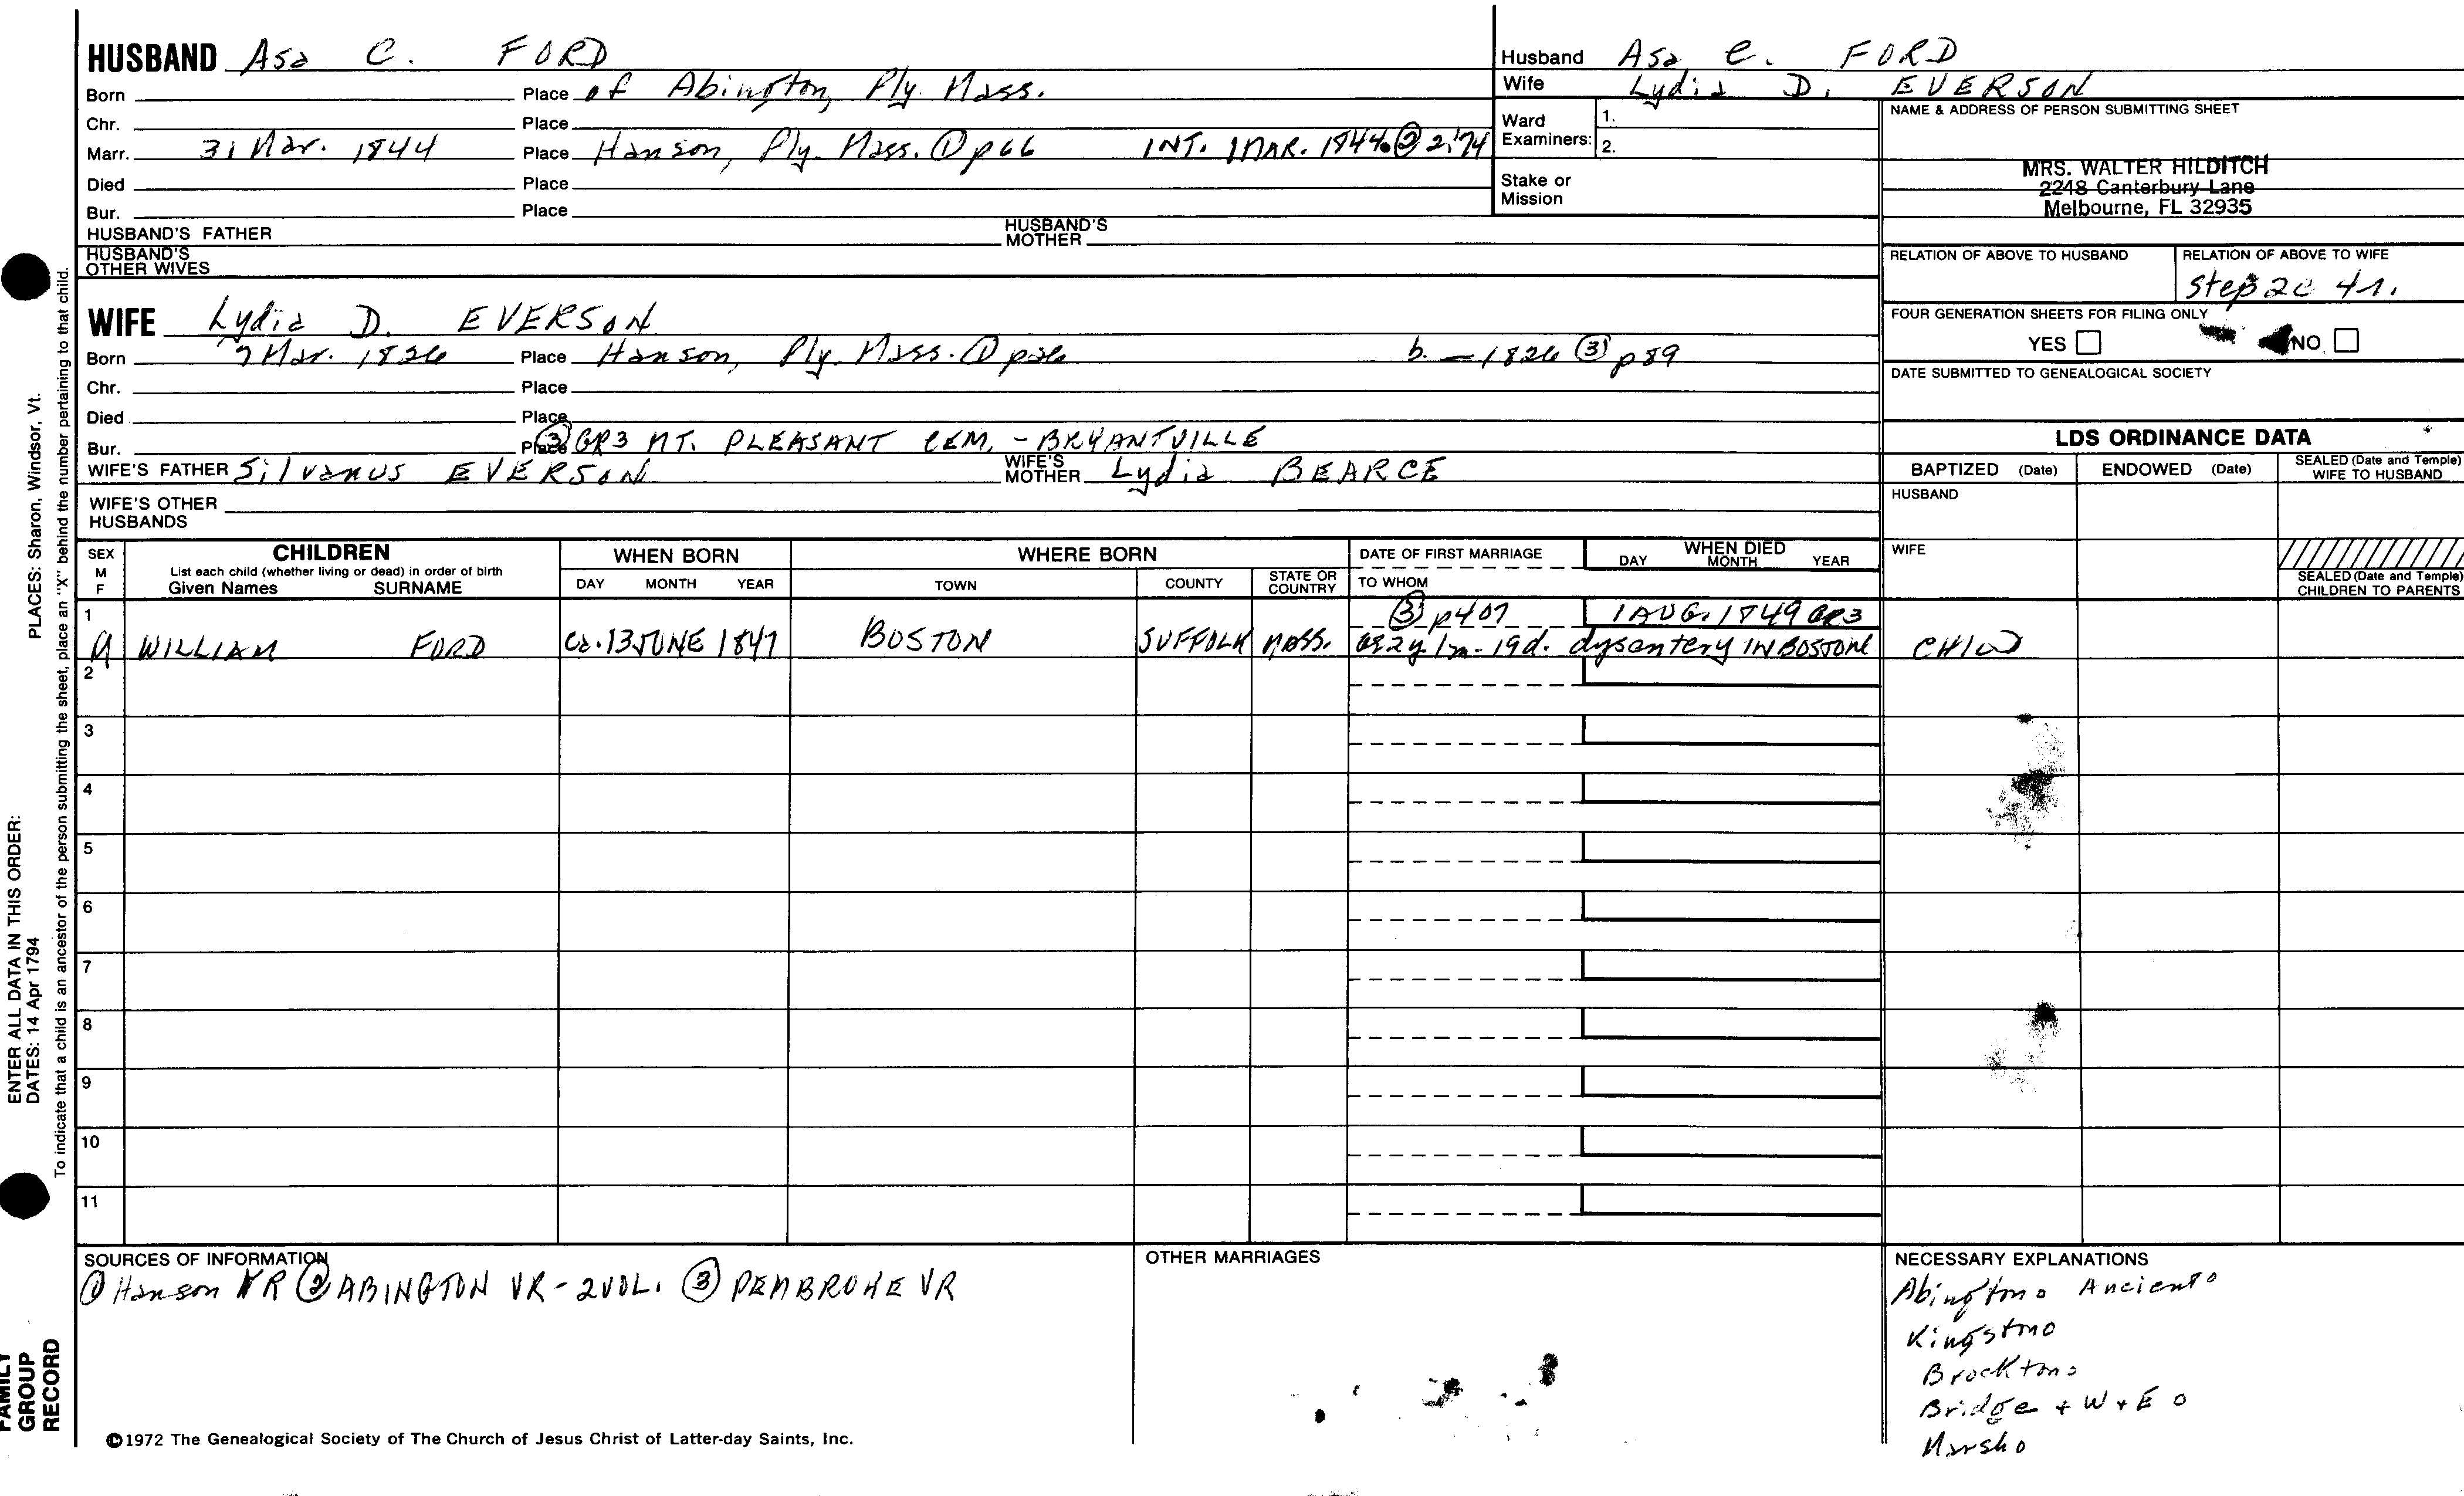 HUSBAND Asa C. FORD
Born Place of Abington, Ply. Mass.
Chr. Place
Marr. 31 Mar. 1844 Place Hanson, Ply. Mass. ① p66 INT. 1 MAR. 1844 ② 2:74
Died Place
Bur. Place
HUSBAND'S FATHER HUSBAND'S MOTHER
HUSBAND'S OTHER WIVES
WIFE Lydia D. EVERSON
Born 7 Mar. 1826 Place Hanson, Ply. Mass. ① p26 b. — 1826 ③ p89
Chr. Place
Died Place
Bur. Place ③ GR3 MT. PLEASANT CEM. - BRYANTVILLE
WIFE'S FATHER Silvanus EVERSON WIFE'S MOTHER Lydia BEARCE
WIFE'S OTHER HUSBANDS
Husband Asa C. FORD
Wife Lydia D. EVERSON
Ward Examiners: 1.
2.
Stake or Mission
NAME & ADDRESS OF PERSON SUBMITTING SHEET
MRS. WALTER HILDITCH
2248 Canterbury Lane
Melbourne, FL 32935
RELATION OF ABOVE TO HUSBAND RELATION OF ABOVE TO WIFE
Step 2c 4r.
FOUR GENERATION SHEETS FOR FILING ONLY
YES NO
DATE SUBMITTED TO GENEALOGICAL SOCIETY
LDS ORDINANCE DATA
BAPTIZED (Date) ENDOWED (Date) SEALED (Date and Temple) WIFE TO HUSBAND
HUSBAND
WIFE
SEALED (Date and Temple) CHILDREN TO PARENTS
SEX M F
CHILDREN
List each child (whether living or dead) in order of birth
Given Names SURNAME
WHEN BORN
DAY MONTH YEAR
WHERE BORN
TOWN COUNTY STATE OR COUNTRY
DATE OF FIRST MARRIAGE
TO WHOM
WHEN DIED
DAY MONTH YEAR
1 ③ p407 1 AUG. 1849 GR3
M WILLIAM FORD Ca. 13 JUNE 1847 BOSTON SUFFOLK MASS. ae 2y. 1m - 19d. dysentery IN BOSTON CHILD
2
3
4
5
6
7
8
9
10
11
SOURCES OF INFORMATION
① Hanson VR ② ABINGTON VR - 2 VOL. ③ PEMBROKE VR
OTHER MARRIAGES
NECESSARY EXPLANATIONS
Abington o Ancient o
Kingston o
Brockton o
Bridge + W + E o
Marsh o
©1972 The Genealogical Society of The Church of Jesus Christ of Latter-day Saints, Inc.
PLACES: Sharon, Windsor, Vt.
ENTER ALL DATA IN THIS ORDER:
DATES: 14 Apr 1794
To indicate that a child is an ancestor of the person submitting the sheet, place an "X" behind the number pertaining to that child.
FAMILY
GROUP
RECORD